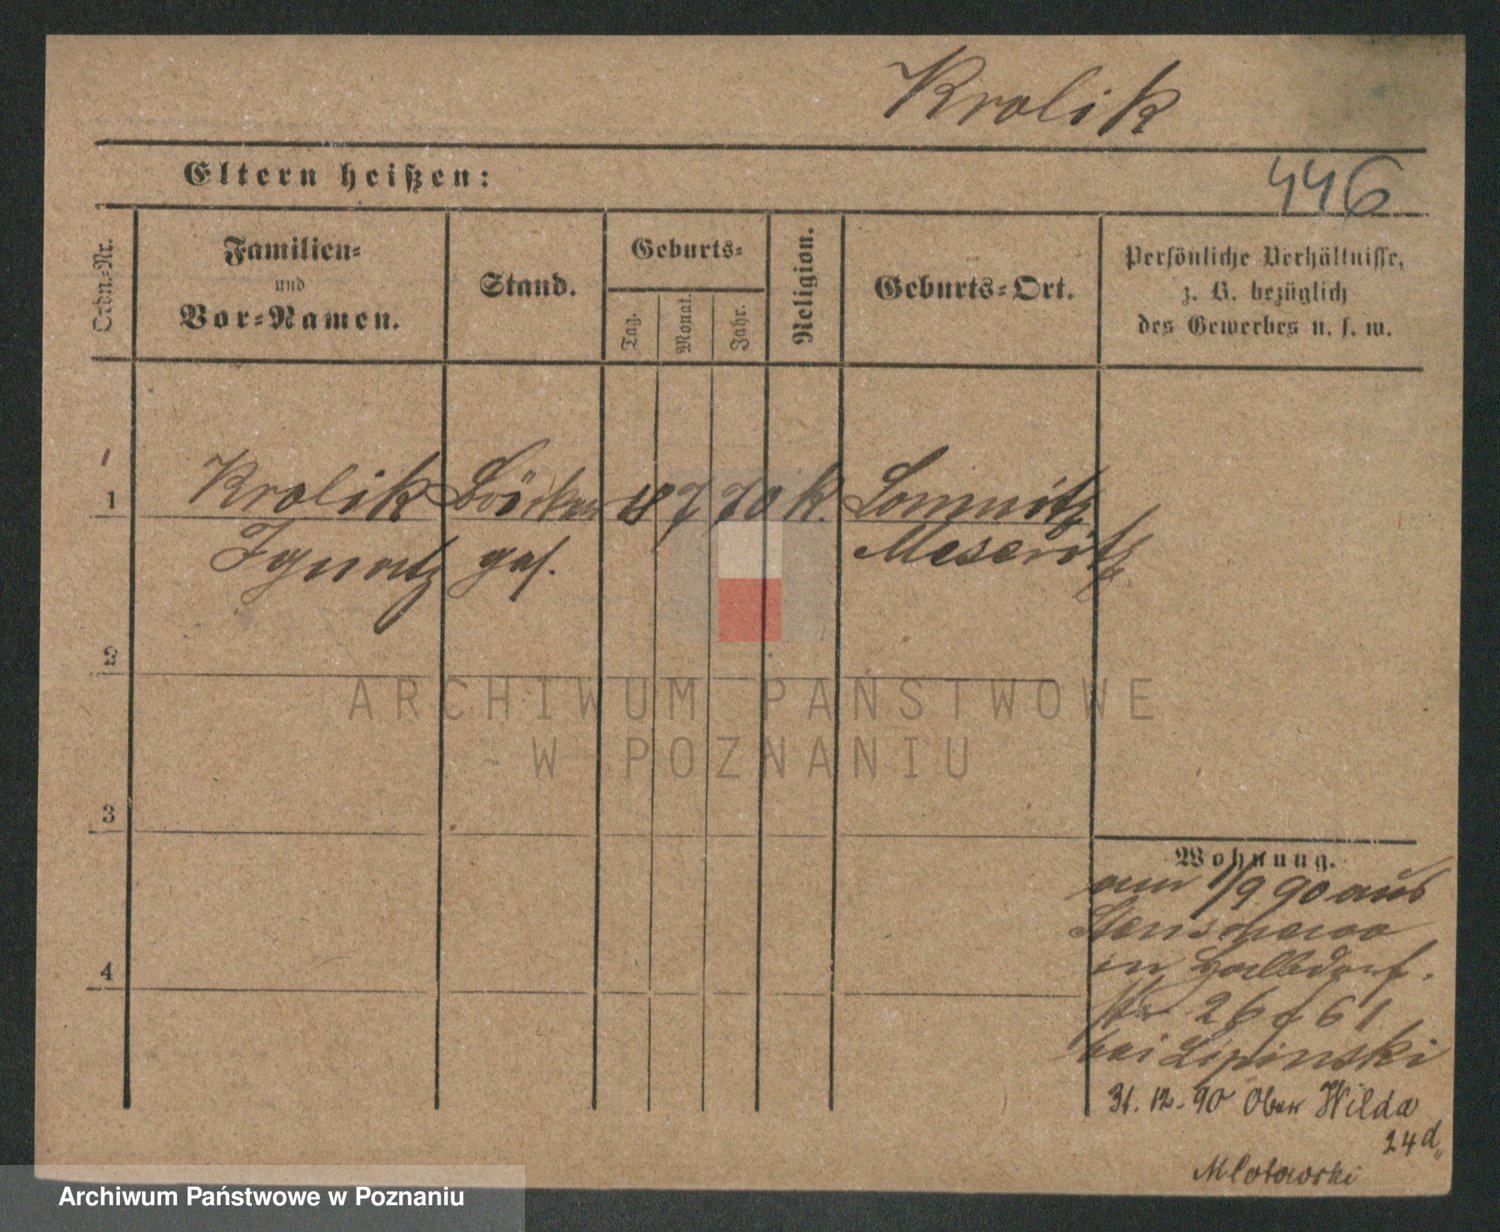 Krolik
Eltern heißen:
446
Ordn.-Nr.
Familien-
und
Vor-Namen.
Stand.
Geburts-
Tag.
Monat.
Jahr.
Religion.
Geburts-Ort.
Persönliche Verhältnisse,
z. B. bezüglich
des Gewerbes u. s. w.
1 Krolik Bäcker 18 7 70 K. Lomnitz
Ignatz ges. Meseritz
2
ARCHIWUM PAŃSTWOWE
W POZNANIU
3
Wohnung.
am 1/9 90 aus
in
4
26 61
bei Lipinski
31.12.90 Ober Wilda
24d
Mlotowski
Archiwum Państwowe w Poznaniu